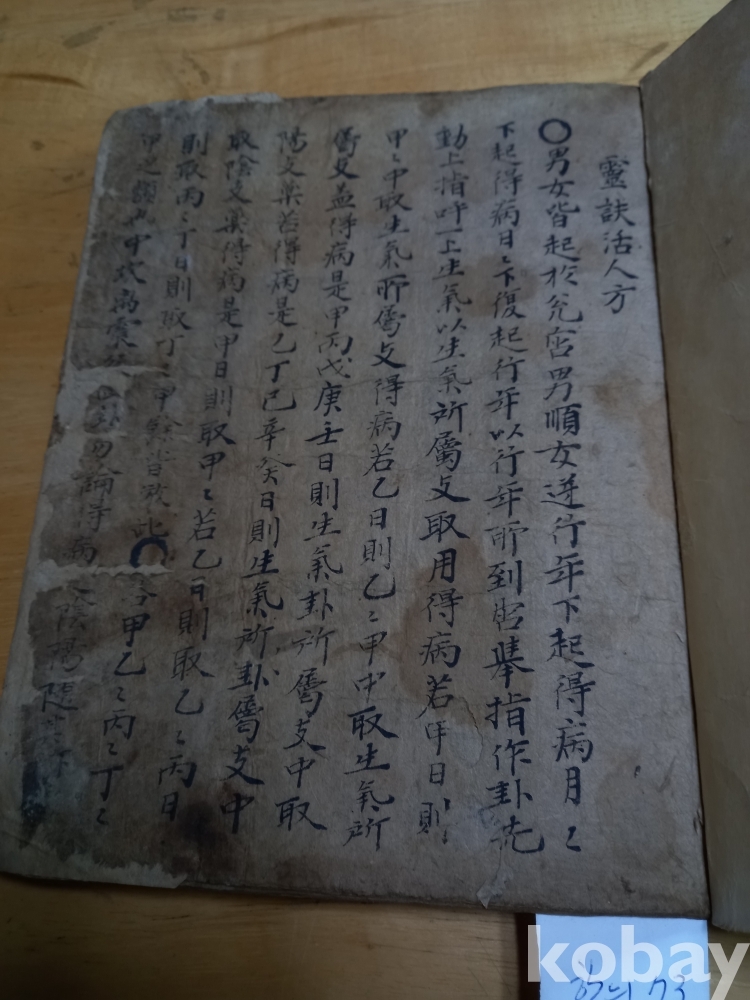 靈訣活人方
○男女皆起於兌宮男順女逆行年下起得病月〻
下起得病日〻下復起行年以行年所到宮擧指作卦先
動上指呼一上生氣以生氣所屬支取用得病若甲日則
甲〻中取生氣所屬支得病若乙日則乙〻甲中取生氣所
屬支盖得病是甲丙戊庚壬日則生氣卦所屬支中取
陽支藥若得病是乙丁己辛癸日則生氣所卦屬支中
取陰支藥得病是甲日則取甲〻若乙日則取乙〻丙日
則取丙〻丁日則取丁〻甲餘皆放此 甲乙〻丙〻丁〻
甲之類也中 勿論得病 陰陽隨
kobay